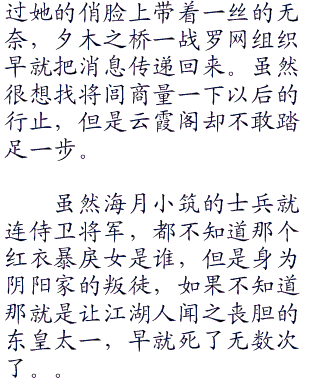 过她的俏脸上带着一丝的无
奈，夕木之桥一战罗网组织
早就把消息传递回来。虽然
很想找将闾商量一下以后的
行止，但是云霞阁却不敢踏
足一步。
虽然海月小筑的士兵就
连侍卫将军，都不知道那个
红衣暴戾女是谁，但是身为
阴阳家的叛徒，如果不知道
那就是让江湖人闻之丧胆的
东皇太一，早就死了无数次
了。。